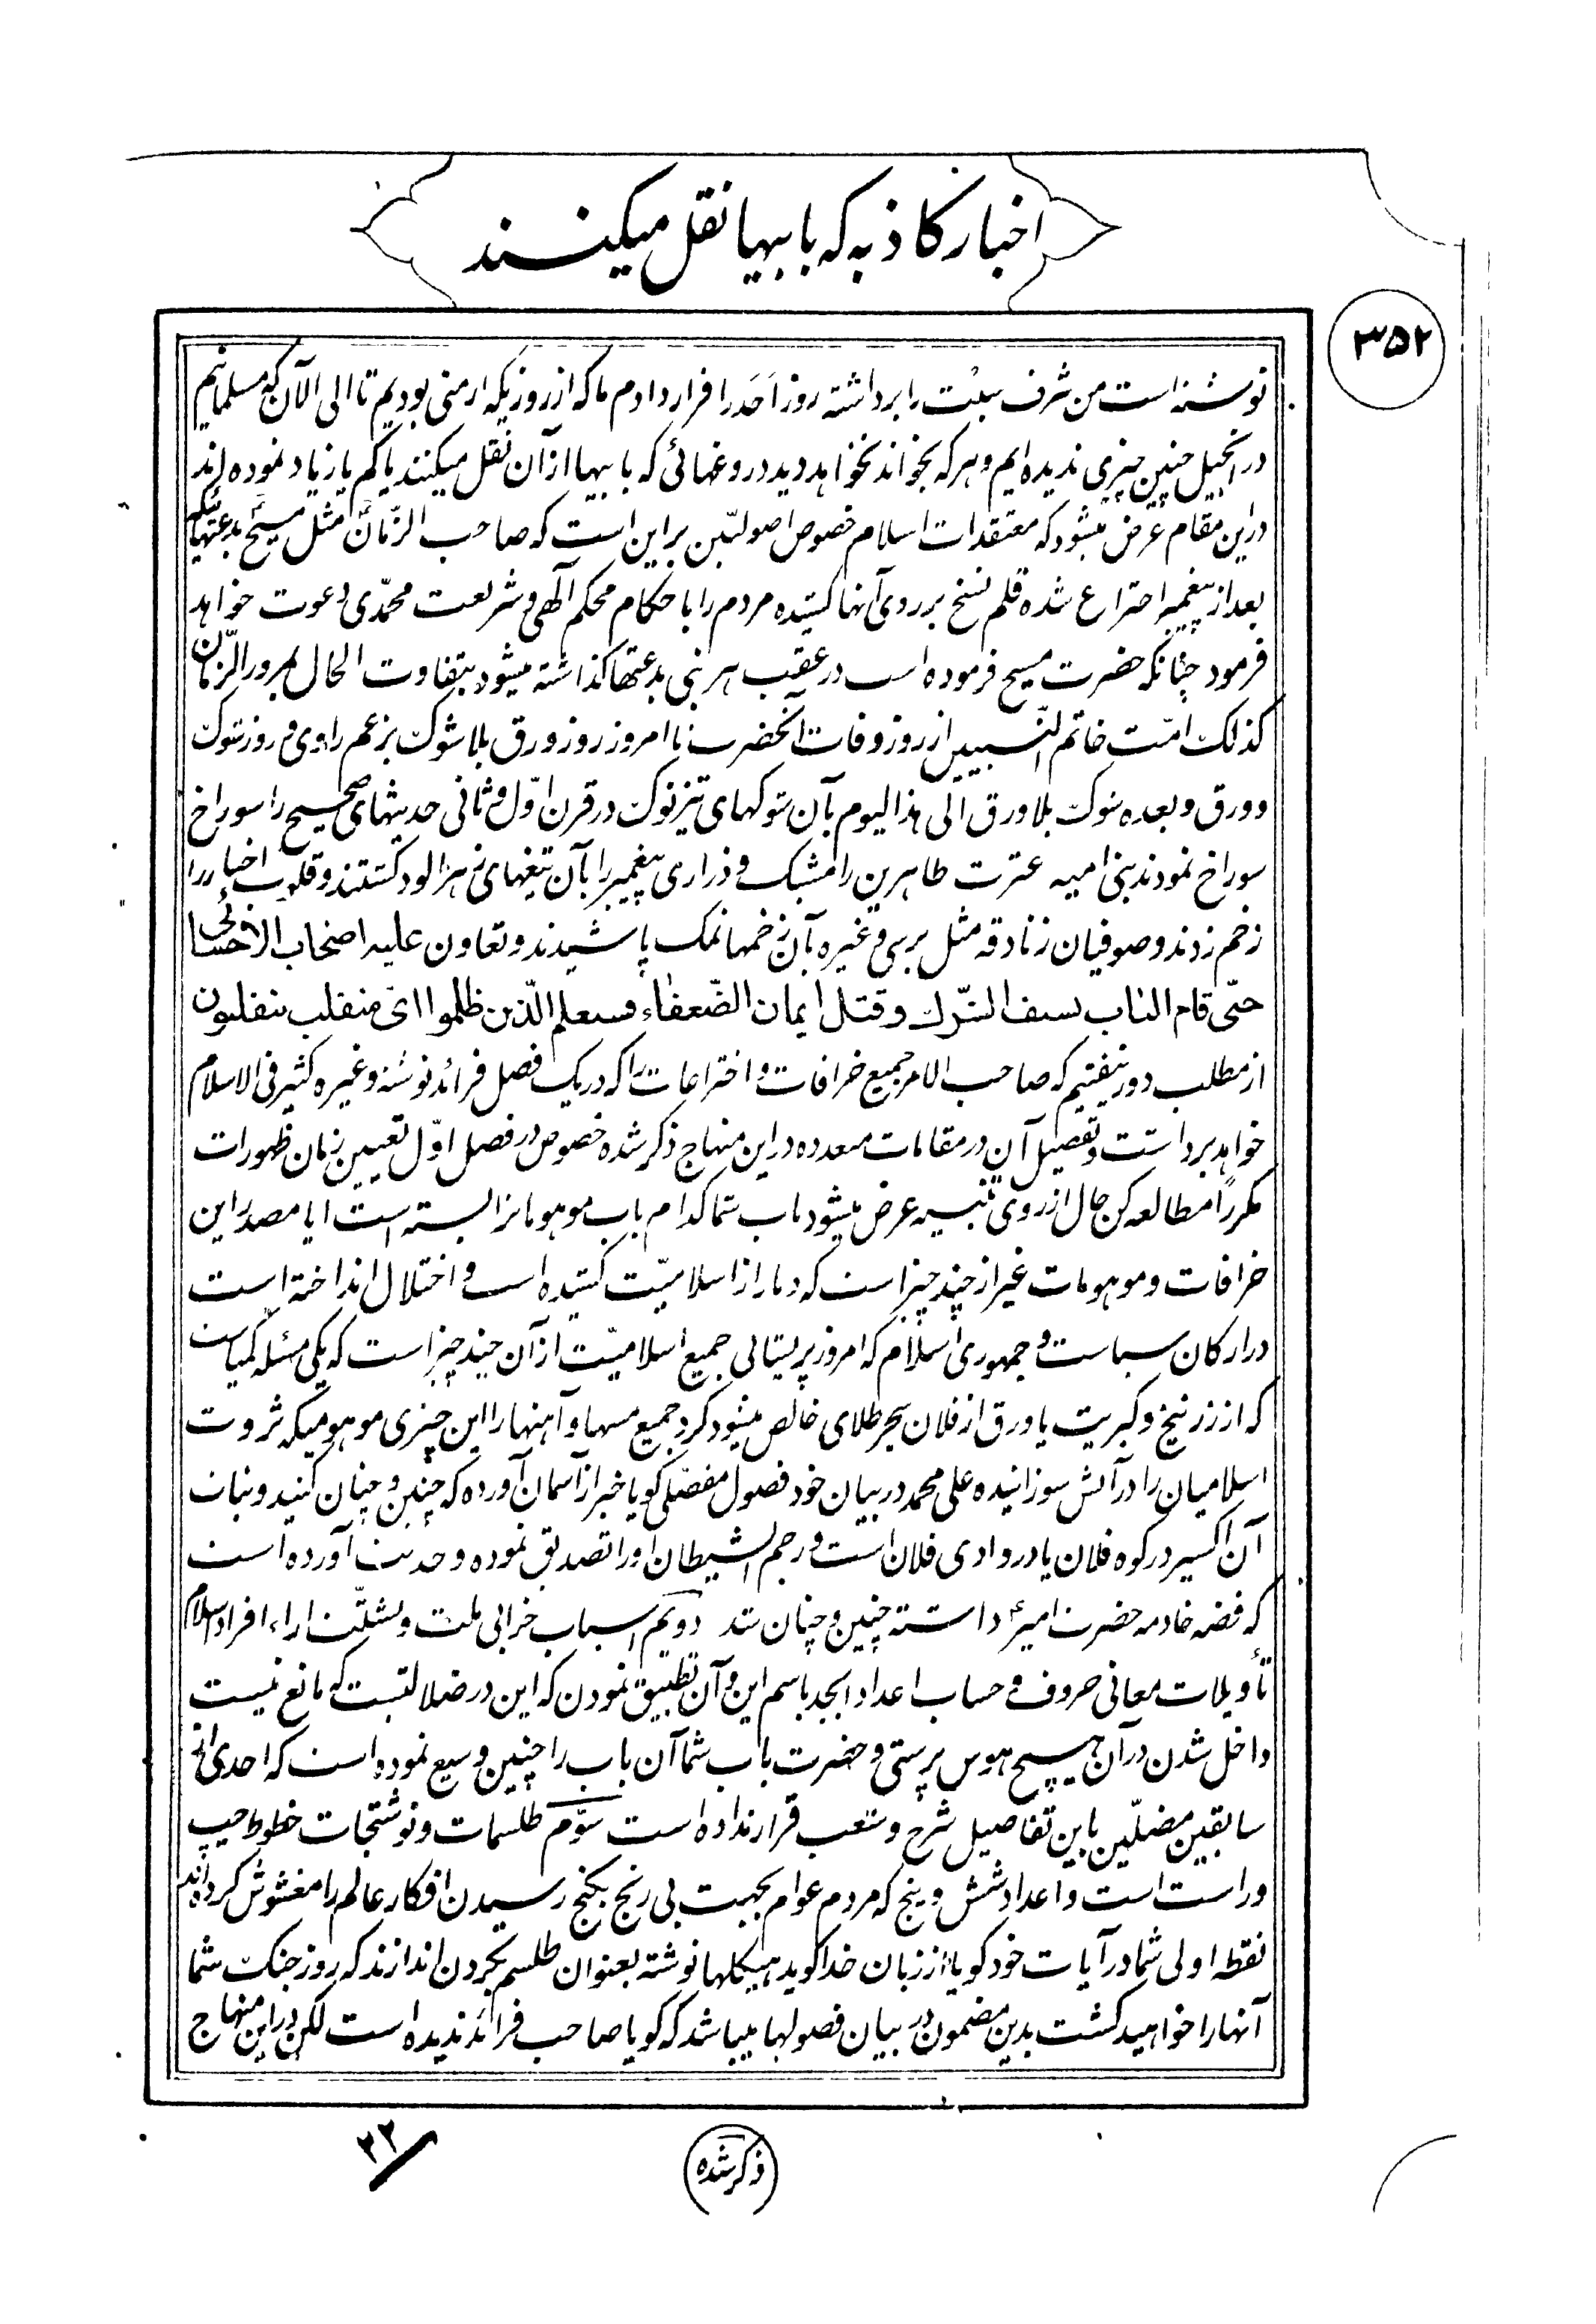 اخبار کاذبه که بابیها نقل میکنند
۳۵۲
نوشته است من شرف سبت را برداشته روز اَحَد را قرار دادم ما که از روزیکه ارمنی بودیم تا الی الآن که مسلمانیم
در انجیل چنین چیزی ندیده ایم و هر که بخواند نخواهد دید دروغهائی که بابیها از آن نقل میکنند یا کم یا زیاد نموده اند
در این مقام عرض میشود که معتقدات اسلام خصوص اصولیّین بر این است که صاحب الزّمان مثل مسیح بدعتهائیکه
بعد از پیغمبر اختراع شده قلم نسخ بر روی آنها کشیده مردم را با حکام محکم آلهی و شریعت محمّدی دعوت خواهد
فرمود چنانکه حضرت مسیح فرموده است در عقیب هر نبی بدعتها گذاشته میشود بتفاوت الحال بمرور الزّمان
کذلک امّت خاتم النّبییین از روز وفات آنحضرت تا امروز روز ورق بلا شوک بزعم راوی و روز شوک
و ورق و بعده شوک بلا ورق الی هذا الیوم بآن شوکهای تیز نوک در قرن اوّل و ثانی حدیثهای صحیح را سوراخ
سوراخ نمودند بنی امیه عترت طاهرین را مشبک و ذراری پیغمبر را بآن تیغهای زهر الود کشتند و قلوب اخیار را
زخم زدند و صوفیان زنادقه مثل بربری و غیره بآن زخمها نمک پاشیدند و تعاون علیه اصحاب الاحسائی
حتّی قام الباب بسیف الشّرک و قتل ایمان الضّعفاء و سیعلم الّذین ظلموا ایّ منقلب ینقلبون
از مطلب دور نیفتیم که صاحب الامر جمیع خرافات و اختراعات را که در یک فصل فرائد نوشته و غیره کثیر فی الاسلام
خواهد برداشت و تفصیل آن در مقامات متعدده در این منهاج ذکر شده خصوص در فصل اوّل تعیین زمان ظهورات
مکرراً مطالعه کن حال از روی تنبیه عرض میشود باب شما کدام باب موهومانرا بسته است ایا مصدر این
خرافات و موهومات غیر از چند چیز است که دمار از اسلامیّت کشیده است و اختلال انداخته است
در ارکان سیاست و جمهوری اسلام که امروز پریشانی جمیع اسلامیّت از آن چند چیز است که یکی مسئله کمیاست
که از زرنیخ و کبریت یا ورق از فلان شجر طلای خالص میشود کرد جمیع مسها و آهنها را این چیزی موهومیکه ثروت
اسلامیان را در آتش سوزانیده علی محمد در بیان خود فصول مفصّلی گویا خبر از آسمان آورده که چنین و چنان کنید و نبات
آن اکسیر در کوه فلان یا در وادی فلان است و رجم الشیطان او را تصدیق نموده و حدیث آورده است
که فضه خادمه حضرت امیرؑ دانسته چنین و چنان شد دویّم اسباب خرابی ملت و تشتّت اراء افراد اسلام
تأویلات معانی حروف و حساب اعداد ابجد باسم این و آن تطبیق نمودن که این در ضلالتیست که مانع نیست
داخل شدن در آن هیچ هوس پرستی و حضرت باب شما آن باب را چنین وسیع نموده است که احدی از
سابقین مضلّین باین تفاصیل شرح و شعب قرار نداده است سوّم طلسمات و نوشتجات خطوط چپ
و راست است و اعداد شش و پنج که مردم عوام بجهت بی رنج بگنج رسیدن افکار عالم را مغشوش کرده اند
نقطه اولی شما در آیات خود گویا از زبان خدا گوید هیکلها نوشته بعنوان طلسم بگردن اندازند که روز جنک شما
آنها را خواهید کشت بدین مضمون در بیان فصولها میباشد که گویا صاحب فرائد ندیده است لکن در این منهاج
ذکر شده
۲۲